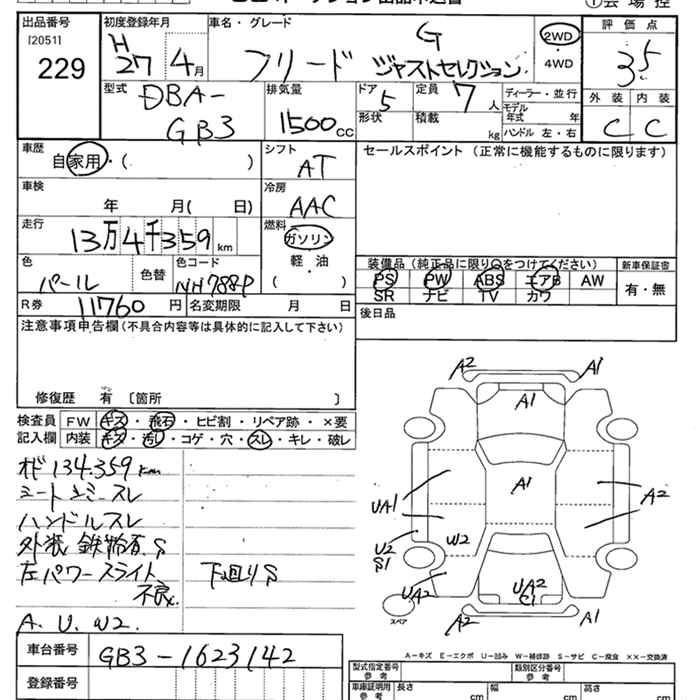 出品番号 初度登録年月 車名・グレード ①会場控
[2051] H27 4月 フリード G ジャストセレクション 2WD・4WD
229
評価点 3.5
外装 内装
C C
型式 DBA-GB3
排気量 1500cc
ドア 5 定員 7人 ディーラー・並行
形状 積載 kg モデル年式 年
ハンドル 左・右
車歴 自家用・( )
シフト AT
セールスポイント(正常に機能するものに限ります)
車検 年 月( 日)
冷房 AAC
走行 13万4千359km
燃料 ガソリン
軽・油
( )
色 パール 色替 色コード NH788P
装備品(純正品に限り○をつけてください) 新車保証書
PS PW ABS エアB AW 有・無
SR ナビ TV カワ
R券 11760円 名変期限 月 日
後日品
注意事項申告欄(不具合内容等は具体的に記入して下さい)
修復歴 有 〔箇所 〕
検査員 FW キズ・飛石・ヒビ割・リペア跡・×要
記入欄 内装 キズ・汚れ・コゲ・穴・スレ・キレ・破レ
134.359km
シートシミースレ
ハンドルスレ
外装 鉄粉有.S
左パワースライド 下廻りS
不良.
A. U. W2.
A2 A1
A1
A1
UA1 A2
U2 W2
S1
UA2 UA2
C1
A2 A1
スペア
A-キズ E-エクボ U-凹み W-補修跡 S-サビ C-腐食 XX-交換済
車台番号 GB3-1623142
登録番号
型式指定番号 参考 類別区分番号 参考
車庫証明用 参考 長さ cm 幅 cm 高さ cm